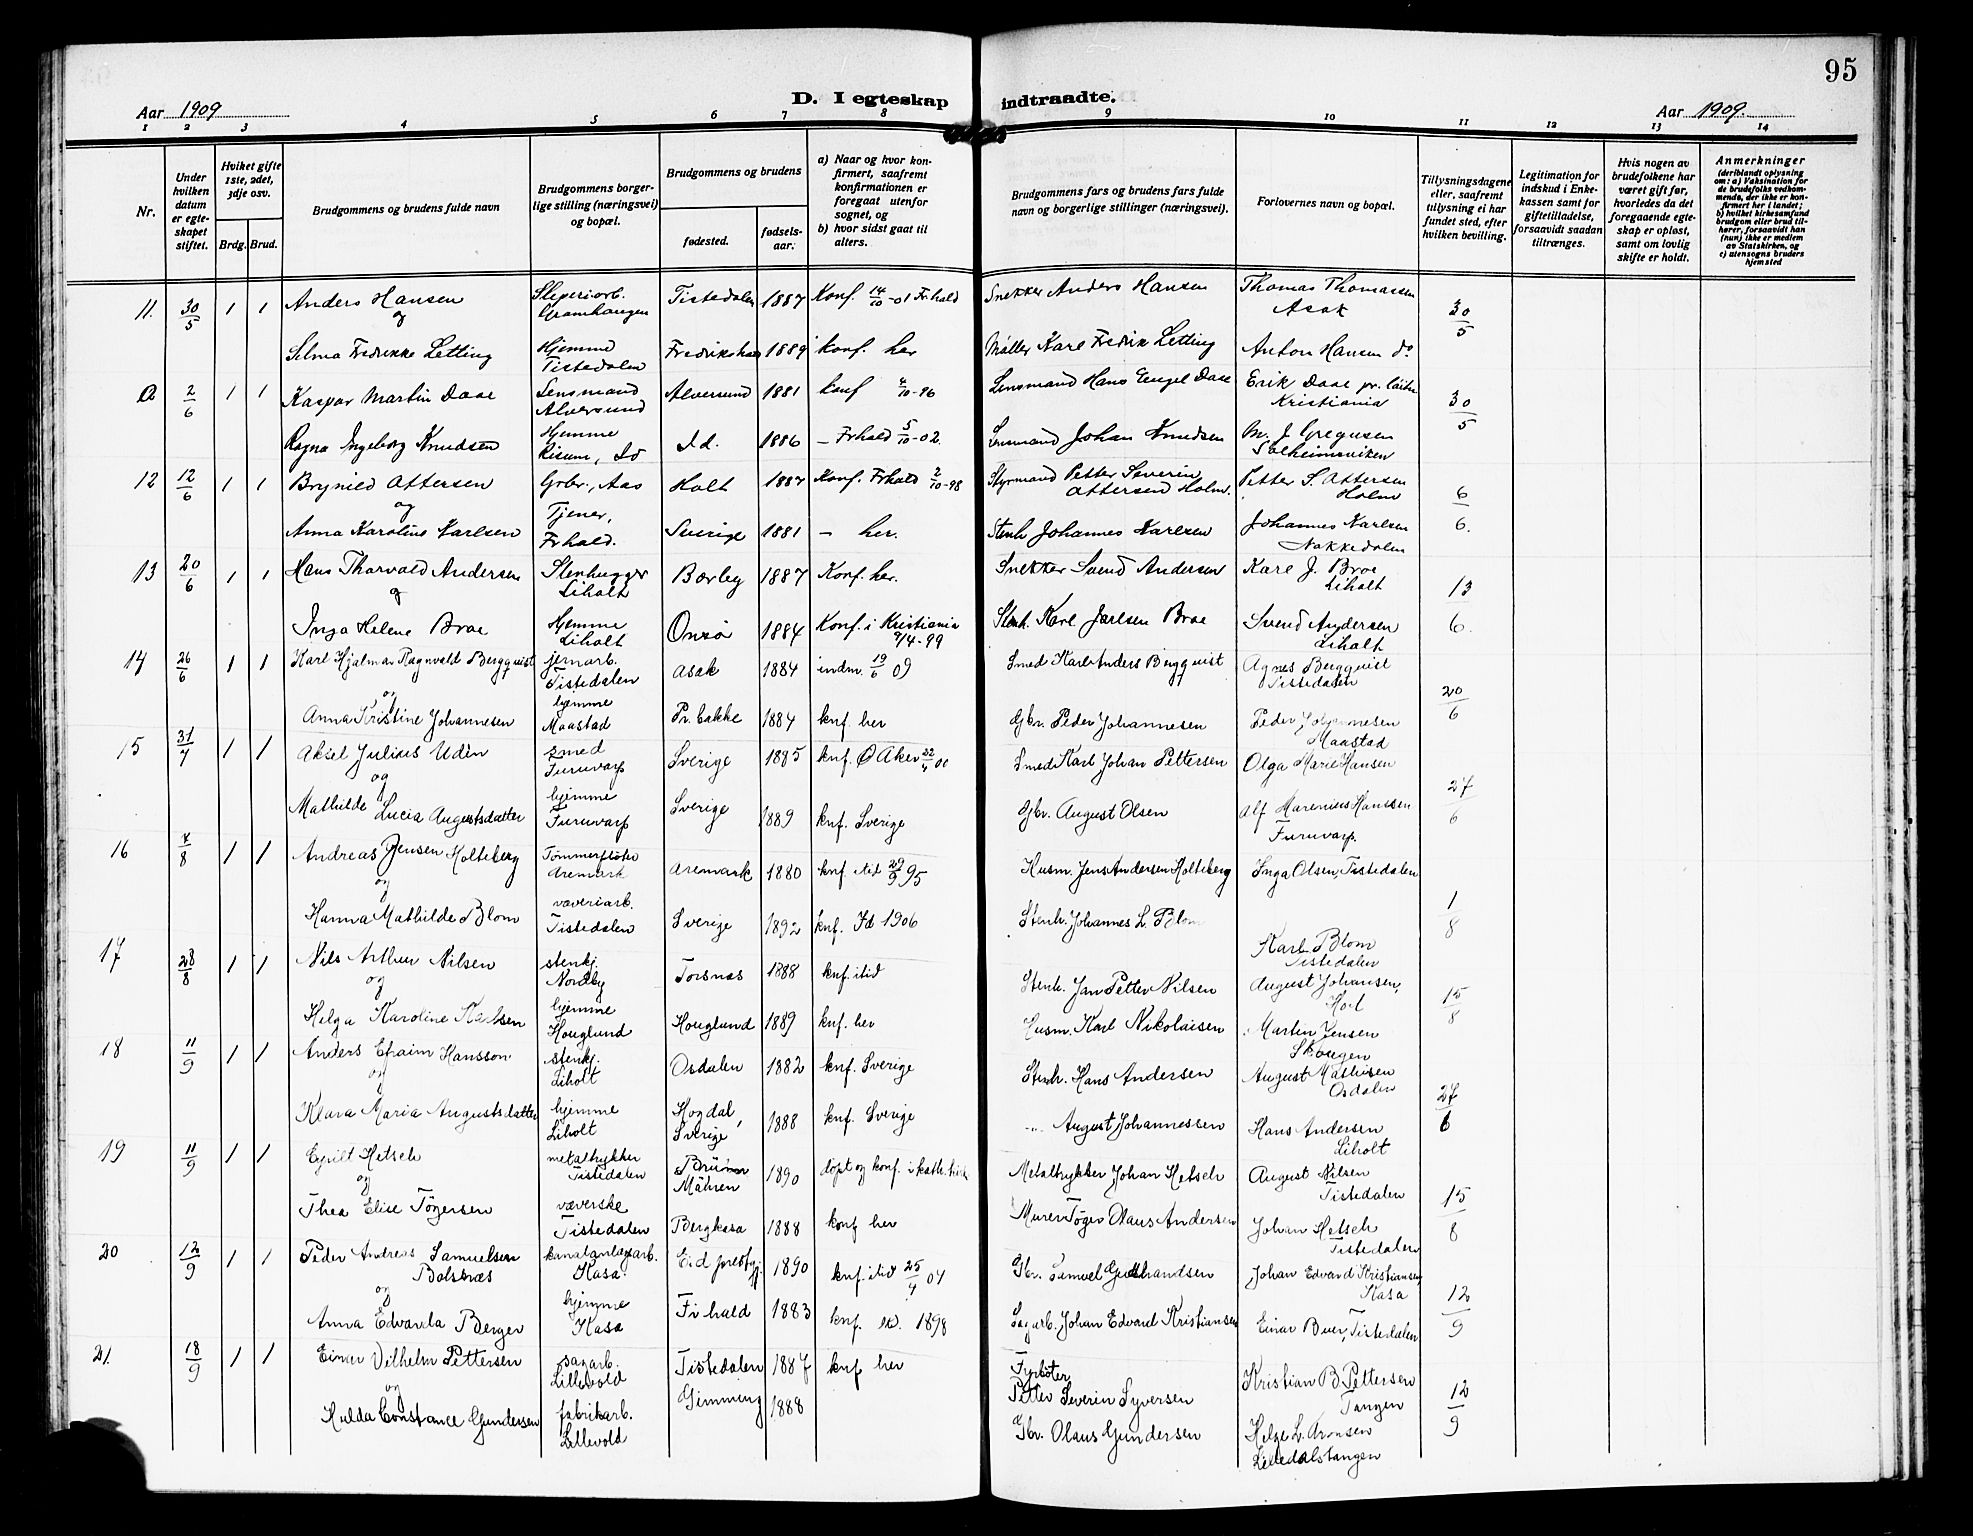 95
Aar 1909
D. I egteskap indtraadte.
Aar 1909.
1 2 3 4 5 6 7 8 9 10 11 12 13 14
Nr.
Under hvilken datum er egteskapet stiftet.
Hvilket gifte 1ste, 2det, 3dje osv.
Brdg. Brud.
Brudgommens og brudens fulde navn
Brudgommens borgerlige stilling (næringsvei) og bopæl.
Brudgommens og brudens
fødested.
fødselsaar.
a) Naar og hvor konfirmert, saafremt konfirmationen er foregaat utenfor sognet, og
b) hvor sidst gaat til alters.
Brudgommens fars og brudens fars fulde navn og borgerlige stillinger (næringsvei).
Forlovernes navn og bopæl.
Tillysningsdagene eller, saafremt tillysning ei har fundet sted, efter hvilken bevilling.
Legitimation for indskud i Enkekassen samt for giftetilladelse, forsaavidt saadan tiltrænges.
Hvis nogen av brudefolkene har været gift før, hvorledes da det foregaaende egteskap er opløst, samt om lovlig skifte er holdt.
Anmerkninger (deriblandt oplysning om: a) Vaksination for de brudefolks vedkommende, der ikke er konfirmert her i landet; b) hvilket kirkesamfund brudgom eller brud tilhører, forsaavidt han (hun) ikke er medlem av Statskirken, og c) utensogns bruders hjemsted
11. 30/5 1 1 Anders Hansen Sliperiarb. Tistedalen 1887 Konf. 14/10-01 Frhald Snekker Anders Hansen Thomas Thomassen 30/5
og Asak
Selma Fredrikke Letting Hjemme Tistedalen Fredrikshald 1889 Konf. her Møller Karl Fredrik Letting Anton Hansen do
a 2/6 1 1 Kaspar Martin Daae Lensmand Alversund Alversund 1881 konf 4/10-96 Lensmand Hans Engel Daae Erik Daae 30/5
Kristiania
Ragna Ingeborg Knudsen Hjemme Risum, Id Id. 1886 – Frhald 5/10-02. Lensmand Johan Knudsen M. J. Gregusen
Solheimsviken
12 12/6 1 1 Brynild Ottersen Grbr., Aas Holt 1887 Konf. Frhald 2/10-98 Styrmand Petter Severin Ottersen Holm. Petter S. Ottersen 6/6.
og Holm
Anna Karoline Karlsen Tjener, Frhald. Sverige 1881 – her. Stenh Johannes Karlsen Johannes Karlsen
Nakkedalen
13 20/6 1 1 Hans Thorvald Andersen Stenhugger Liholt Borby 1887 Konf. her. Snekker Svend Andersen Karl J. Broe 13/6.
og Liholt
Inga Helene Broe Hjemme Liholt Onsø 1884 Konf. i Kristiania 9/4-99 Stenh. Karl Joelsen Broe Svend Andersen
Liholt
14 26/6 1 1 Karl Hjalmar Ragnvald Bergquist jernarb. Tistedalen Asak 1884 indm. 19/6 09 Smed Karl Anders Bergquist Agnes Bergquist 20/6
og Tistedalen
Anna Kristine Johannesen hjemme Maastad Pr.bakke 1884 knf. her Gbr. Peder Johannesen Peder Johannesen
Maastad
15 31/7 1 1 Aksel Julius Udèn smed Furuvarp Sverige 1885 knf. Ø Aker 22/4 00 Smed Karl Johan Pettersen Olga Marie Hansen 27/6
og
Mathilde Lucia Augustsdatter hjemme Furuvarp Sverige 1889 knf. Sverige Gbr. August Olsen Alf Marenius Hanssen
Furuvarp.
16 7/8 1 1 Andreas Jensen Holteberg Tømmerfløter Aremark Aremark 1880 knf. itid 29/9 95 Husm. Jens Andersen Holteberg Inga Olsen, Tistedalen 1/8
og
Hanna Mathilde Blom væveriarb. Tistedalen Sverige 1892 knf. Id 1906 Stenh. Johannes L. Blom Karl Blom
Tistedalen
17 28/8 1 1 Nils Arthur Nilsen stenhj. Nordby Torsnæs 1888 knf. itid Stenh. Jan Petter Nilsen August Johansen, 15/8
og Hol
Helga Karoline Karlsen hjemme Houglund Houglund 1889 knf. her Husm. Karl Nikolaisen Martin Jensen
Skougen
18 11/9 1 1 Anders Efraim Hansson stenhj. Liholt Osdalen 1882 knf. Sverige Stenh. Hans Andersen August Mathisen 27/6
og Osdalen
Klara Maria Augustsdatter hjemme Liholt Hogdal, Sverige 1888 knf. Sverige – „ – August Johannessen Hans Andersen
Liholt
19 11/9 1 1 Hetsch metaltrykker Tistedalen Brünn Mähren 1890 døpt og konf. i kath. Metaltrykker Johan Hetsch August Nilsen 15/8
og Tistedalen
Thea Elise Tøgersen væverske Tistedalen Bergkasa 1888 konf her Murer Tøger Olaus Andersen Johan Hetsch
Tistedalen
20 12/9 1 1 Peder Andreas Samuelsen Bolsnæs kanalanlægsarb. Kasa Eid prestgj. 1890 knf. itid 25/4 04 Gbr. Samuel Gulbrandsen Johan Edvard Kristiansen 12/9
og Kasa
Anna Edvarda Berger hjemme Kasa Fr hald 1883 knf. 1898 Sagarb. Johan Edvard Kristiansen Einar Buer, Tistedalen
21. 18/9 1 1 Einar Vilhelm Pettersen sagarb. Lillevold Tistedalen 1887 knf her Fyrbøter Petter Severin Syversen Kristian B. Pettersen 12/9
og Tangen
Hulda Constance Gundersen fabrikarb. Lillevold Gimming 1888 Gbr. Olaus Gundersen Helge L. Aronsen
Lilledalstangen